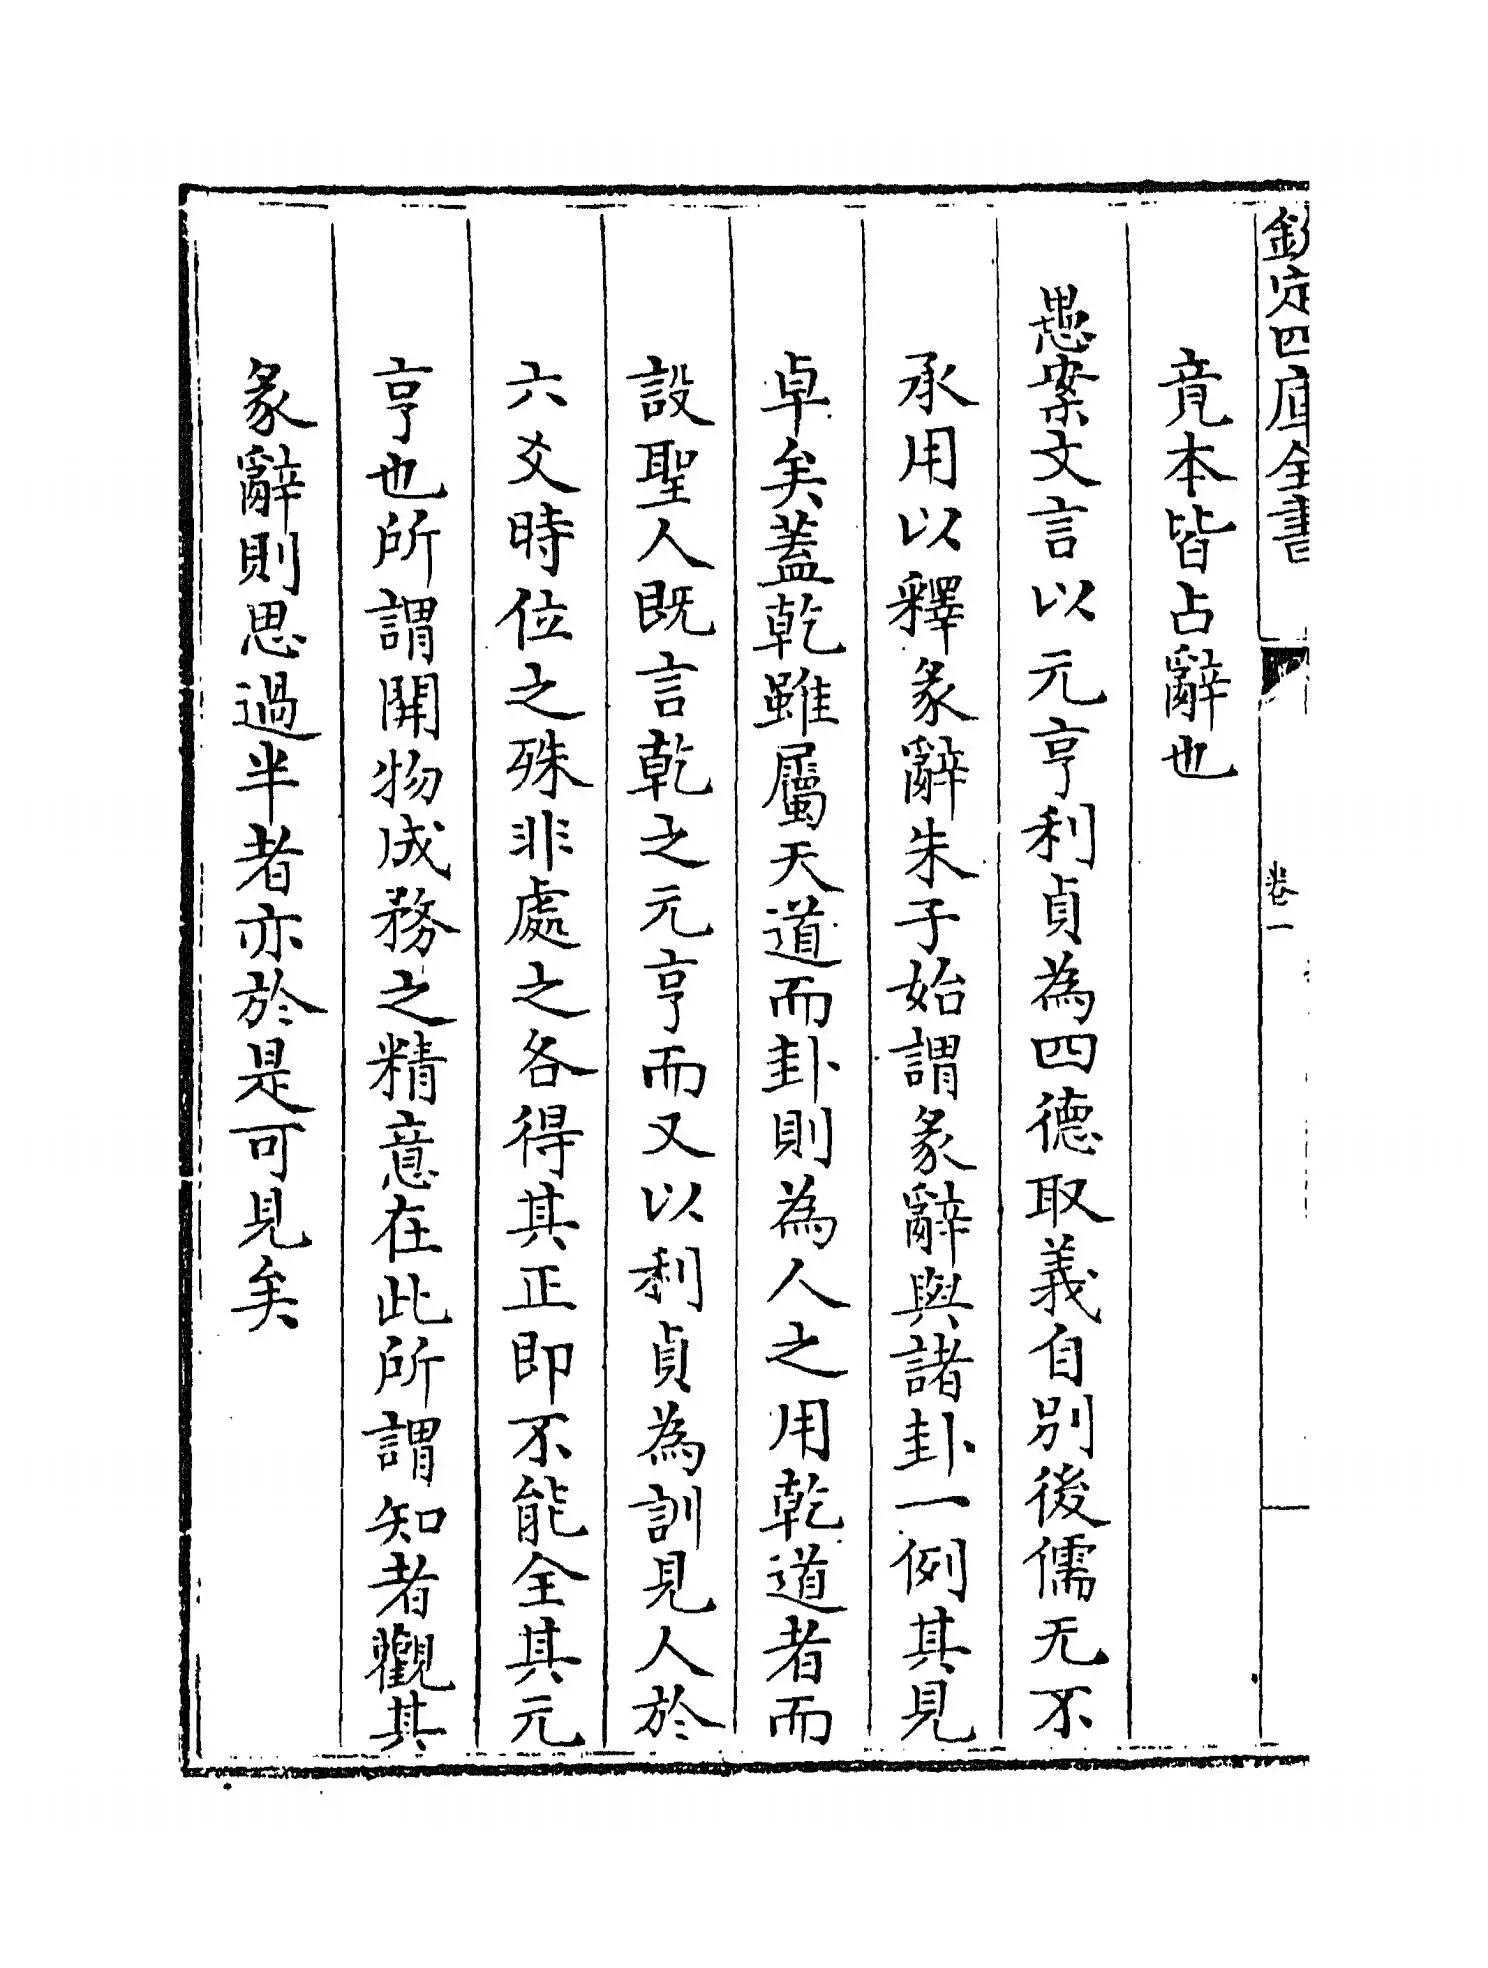 欽定四庫全書
卷一
竟本皆占辭也
愚案文言以元亨利貞為四德取義自別後儒无不
承用以釋彖辭朱子始謂彖辭與諸卦一例其見
卓矣蓋乾雖屬天道而卦則為人之用乾道者而
設聖人既言乾之元亨而又以利貞為訓見人於
六爻時位之殊非處之各得其正即不能全其元
亨也所謂開物成務之精意在此所謂知者觀其
彖辭則思過半者亦於是可見矣